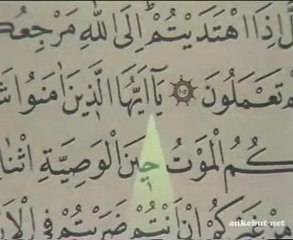 إِذَا اهْتَدَيْتُمْ إِلَى اللّٰهِ مَرْجِعُكُ
تَعْمَلُونَ ۞ يَا أَيُّهَا الَّذِينَ اٰمَنُوا
كُمُ الْمَوْتُ حِينَ الْوَصِيَّةِ اثْنَا
اِنْ اَنْتُمْ ضَرَبْتُمْ فِي الْاَرْ
ankebut.net